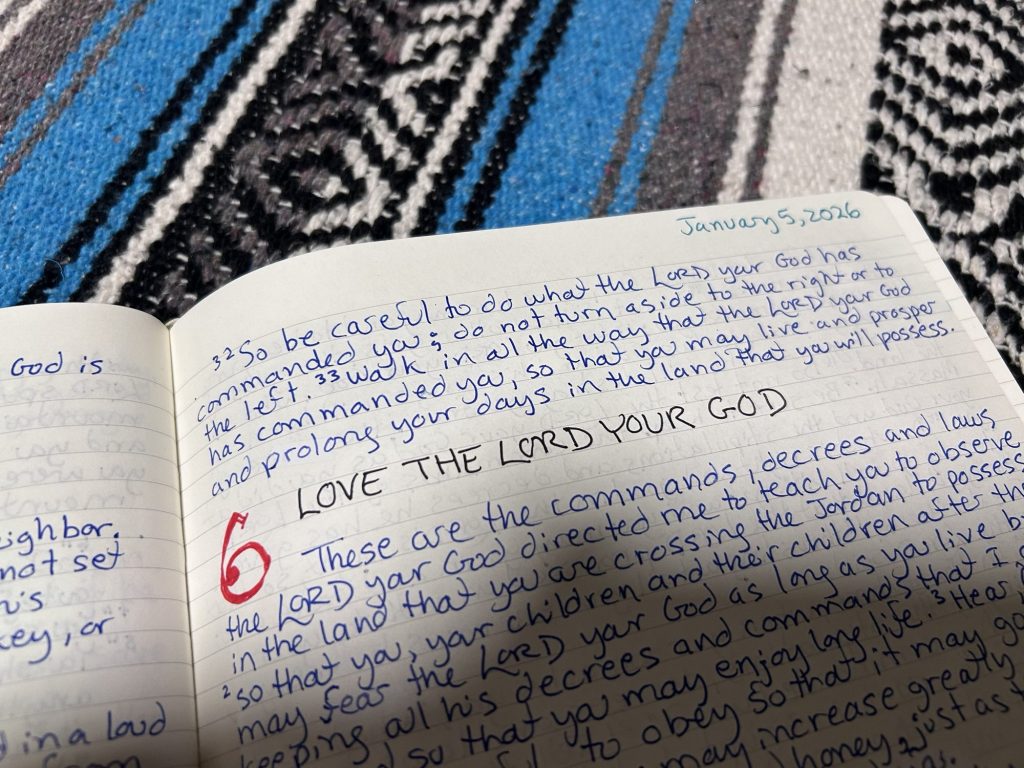 God is
ighbor.
not set
key, or
in a loud
January 5, 2026
³²So be careful to do what the LORD your God has
commanded you; do not turn aside to the right or to
the left. ³³Walk in all the way that the LORD your God
has commanded you, so that you may live and prosper
and prolong your days in the land that you will possess.
LOVE THE LORD YOUR GOD
6 These are the commands, decrees and laws
the LORD your God directed me to teach you to observe
in the land that you are crossing the Jordan to possess
²so that you, your children and their children after the
may fear the LORD your God as long as you live b
keeping all his decrees and commands that I
so that you may enjoy long life. ³Hear,
to obey so that it may go
may increase greatly
honey, just as